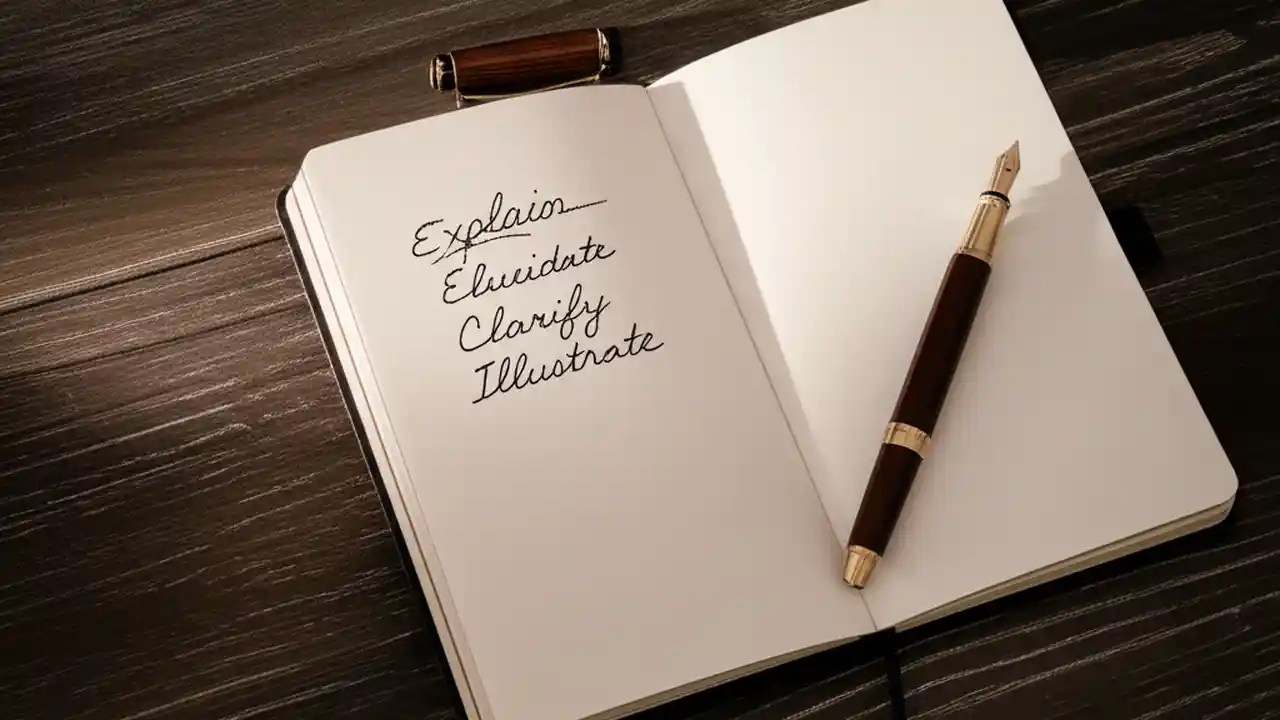 Explain
Elucidate
Clarify
Illustrate